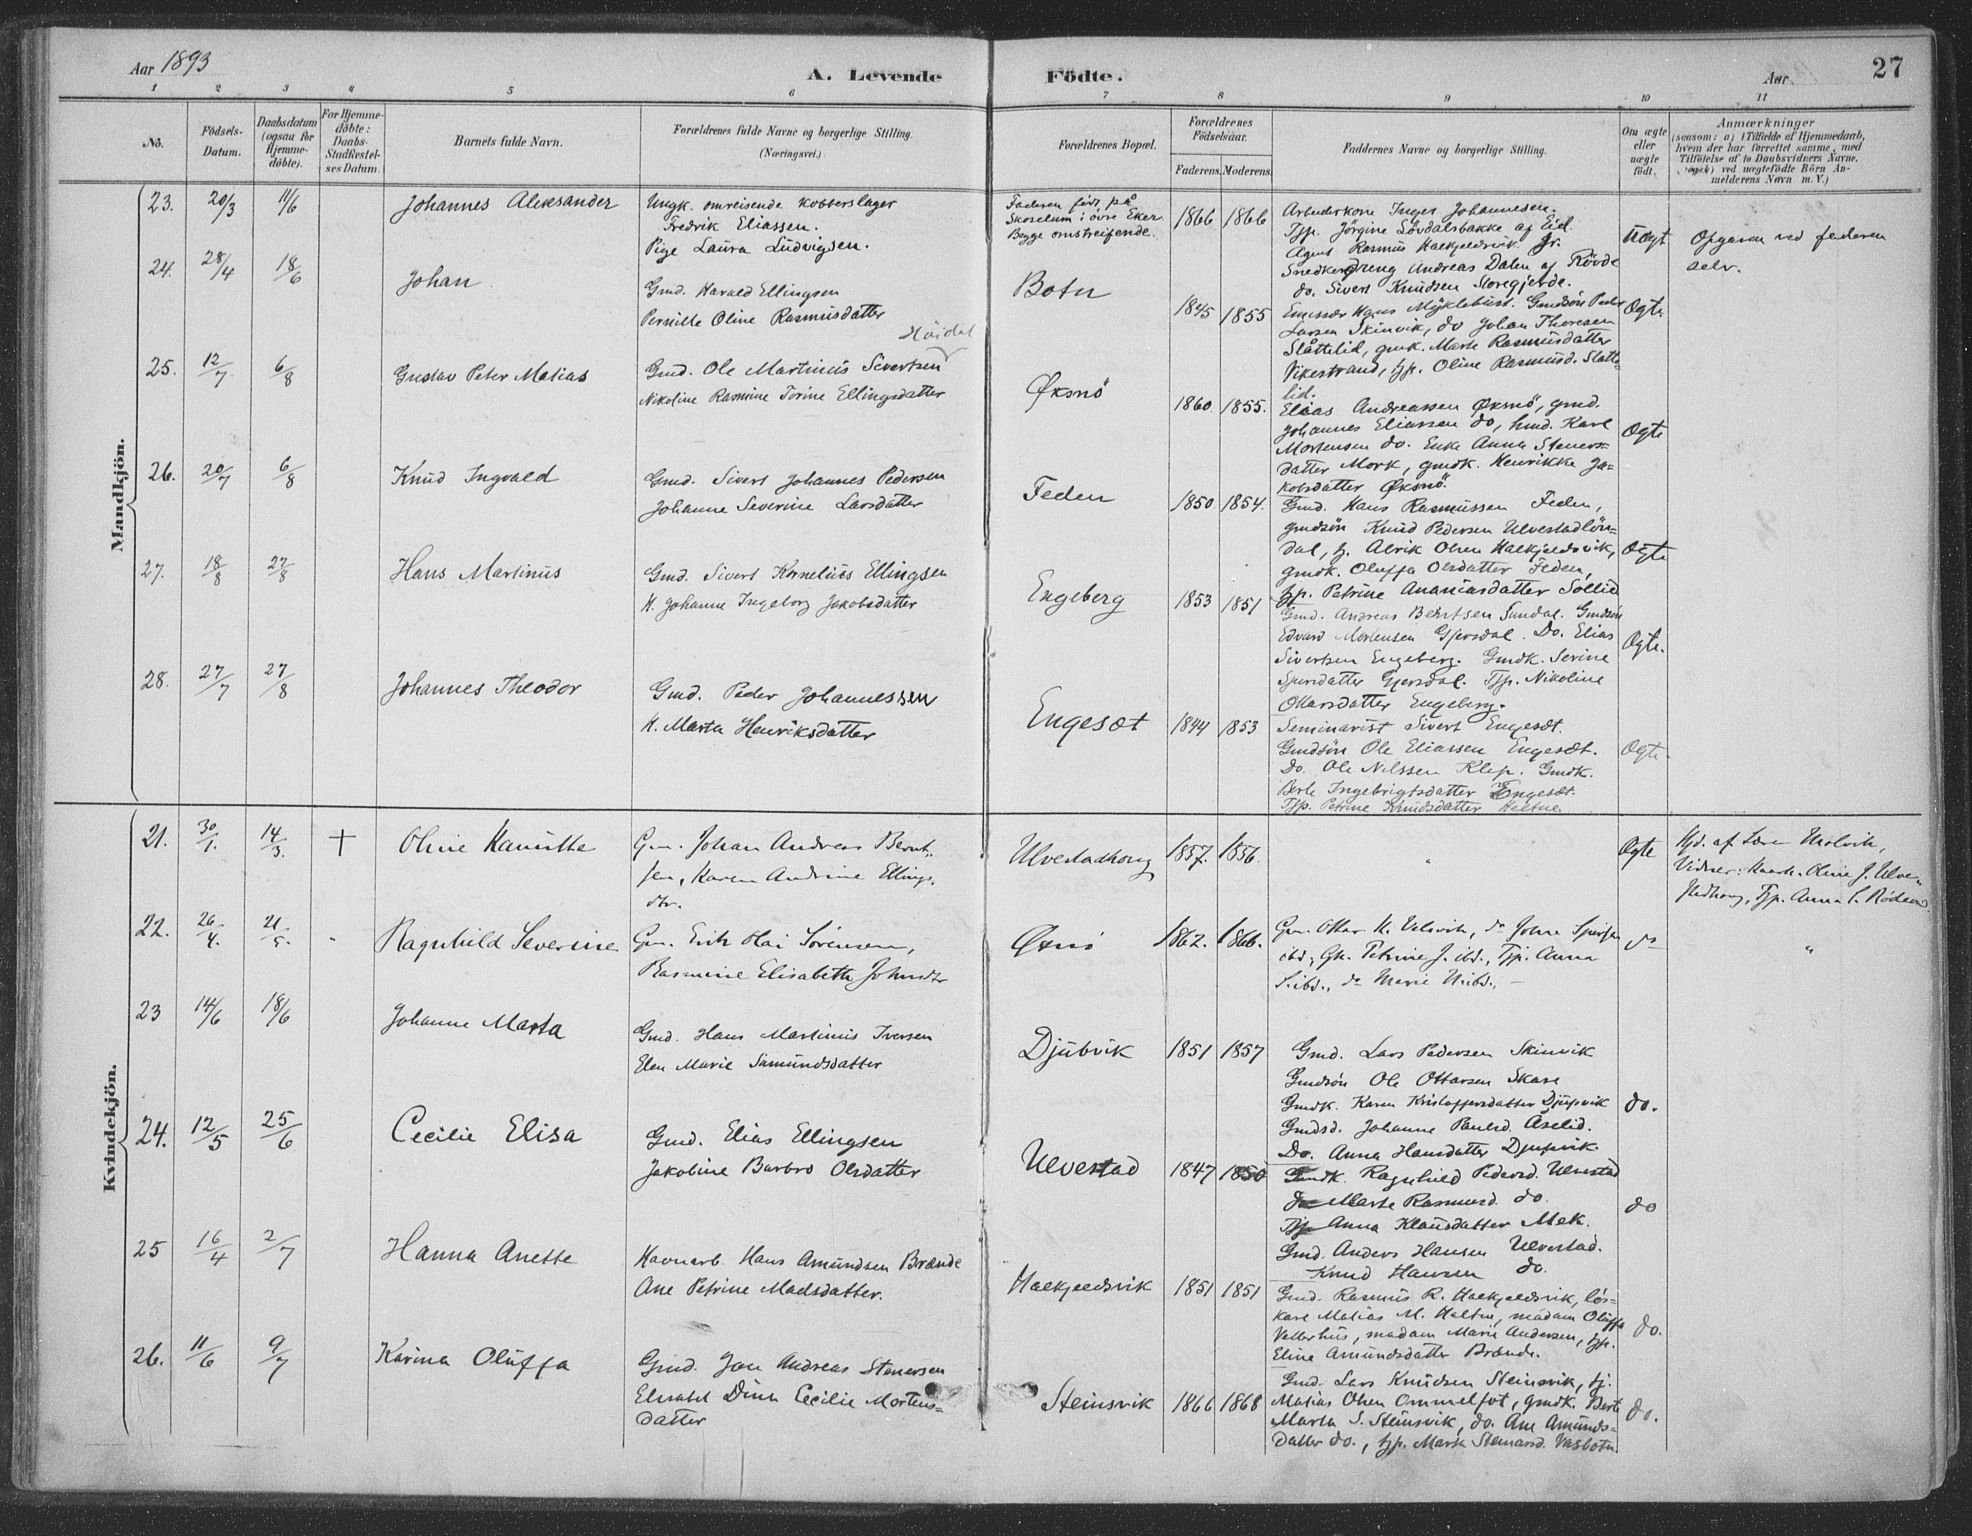 Aar 1893
A. Levende Födte.
Aar
27
1 2 3 4 5 6 7 8 9 10 11
No.
Födsels-Datum.
Daabsdatum (ogsaa for Hjemmedöbte).
For Hjemmedöbte: Daabs-Stadfæstelses Datum.
Barnets fulde Navn.
Forældrenes fulde Navne og borgerlige Stilling.
(Næringsvei.)
Forældrenes Bopæl.
Forældrenes Födselsaar.
Faderens. Moderens.
Faddernes Navne og borgerlige Stilling.
Om ægte eller uægte födt.
Anmærkninger
(saasom: a) i Tilfælde af Hjemmedaab, hvem der har forrettet samme, med Tilföielse af to Daabsvidners Navne.
ved uægtefödte Börn Anmelderens Navn m. V.)
Mandkjön.
23. 20/3 11/6 Johannes Aleksander
Ungk. omreisende kobberslager
Fredrik Eliassen.
Pige Laura Ludvigsen.
Faderen födt på
Skoselum i övre Eker
Begge omstreifende.
1866 1866
Arbeiderkone Inger Johannesen.
Tjp. Jörgine Lövdalsbakke af Eid.
Agent Rasmus Halkjeldsvik jr.
Snedkerdreng Andreas Dalen af Rövde
do. Sivert Knudsen Storegjerde.
Uægt
Opgaven ved faderen
selv.
24. 28/4 18/6 Johan
Gmd. Harald Ellingsen
Pernille Oline Rasmusdatter
Botn
1845 1855
Emissær Hans Myklebust. Gmdsön Peder
Larsen Skinvik, do Johan Thoresen
Slåttelid, gmk. Marte Rasmusdatter
Vikestrand, tjp. Oline Rasmusd. Slåtte-
lid.
Ægte
25. 12/7 6/8 Gustav Peter Matias
Höidal
Gmd. Ole Martinus Sivertsen
Nikoline Rasmine Torine Ellingsdatter
Øksnö
1860 1855.
Elias Andreassen Øksnö, gmd.
Johannes Eliassen do, hmd. Karl
Mortensen do. Enke Anna Steners-
datter Mork, gmdk. Henrikke Ja-
kobsdatter Øksnö.
Ægte
26. 20/7 6/8 Knud Ingvald
Gmd. Sivert Johannes Pedersen
Johanne Severine Larsdatter
Feden
1850 1854.
Gmd. Hans Rasmussen Feden,
gmdsön Knud Pedersen Ulvestadlön-
dal, tj. Alrik Olsen Halkjeldsvik,
gmdk. Oluffa Olsdatter Feden,
tjp. Petrine Ananiasdatter Sollid
Ægte
27. 18/8 27/8 Hans Martinus
Gmd. Sivert Kornelius Ellingsen
H. Johanne Ingeborg Jakobsdatter
Engeberg
1853 1851
Gmd. Andreas Berntsen Sundal. Gmdsön
Edvard Mortensen Gjersdal. Do. Elias
Sivertsen Engeberg. Gmdk. Serine
Sjursdatter Gjersdal. Tjp. Nikoline
Ottarsdatter Engeberg.
Ægte.
28. 27/7 27/8 Johannes Theodor
Gmd. Peder Johannessen
H. Marta Henriksdatter
Engesæt
1844 1853
Seminarist Sivert Engesæt.
Gmdsön Ole Eliassen Engesæt.
Do. Ole Nilssen Klep. Gmdk.
Berte Ingebrigtsdatter Engesæt.
Tjp. Petrine Knudsdatter Heltne.
Ægte.
Kvindekjön.
21. 30/1. 14/3. + Oline Kamilla
Gm. Johan Andreas Bernt-
sen, Karen Andrine Ellings-
dtr.
Ulvestadhoug
1857. 1856.
"
Ægte
Hjd. af Lærer Molvik,
Vidner: Kaark. Oline J. Ulve-
stadhoug, Tjp. Anna S.
22. 26/4. 21/5. Ragnhild Severine
Gm. Erik Hai Sörensen,
Rasmine Elisabeth Johnsdtr
Øxnö
1862. 1866.
Gm. Ottar K. Velsvik, do Johne
ibd., Gk. Petrine J. ibd., Tjp. Anna
S. ibd., do Marie N. ibd.,
do
"
23 14/6 18/6 Johanne Marta
Gmd. Hans Martinus Iversen
Elen Marie Samundsdatter
Djubvik
1851 1857
Gmd. Lars Pedersen Skinvik
Gmdsön Ole Ottarsen Skare
Gmdk. Karen Kristoffersdatter Djupvik
Gmdsd. Johanne Paulsd. Åselid.
Do. Anna Hansdatter Djupvik
do.
24. 12/5 25/6 Cecilie Elisa
Gmd. Elias Ellingsen
Jakobine Barbro Olsdatter
Ulvestad
1847 1850
Gmdk. Ragnhild Pedersd. Ulvestad
do Marte Rasmusd. do.
Tjp Anna Klausdatter Mek.
Gmd. Anders Hansen Ulvestad.
Knud Hansen do.
do
25 16/4 2/7 Hanna Anette
Havnearb. Hans Amundsen Brænde
Ane Petrine Madsdatter.
Halkjeldsvik
1851 1851
Gmd. Rasmus R. Halkjeldsvik, lös-
kare Matias M. Heltne, madam Oluffa
Vatterhus, madam Marie Andersen, tjp.
Eline Amundsdatter Brænde.
do.
26. 11/6 9/7 Karina Oluffa
Gmd. Jon Andreas Stenersen
Elisabet Dina Cecilie Mortens-
datter
Steinsvik
1866 1868
Gmd. Lars Knudsen Steinsvik, tj.
Matias Olsen Ommelfot, gmdk. Berte
Marta S. Steinsvik, do. Ane Amunds-
datter do., tjp. Marte Steinarsd. Vasbotn.
do.